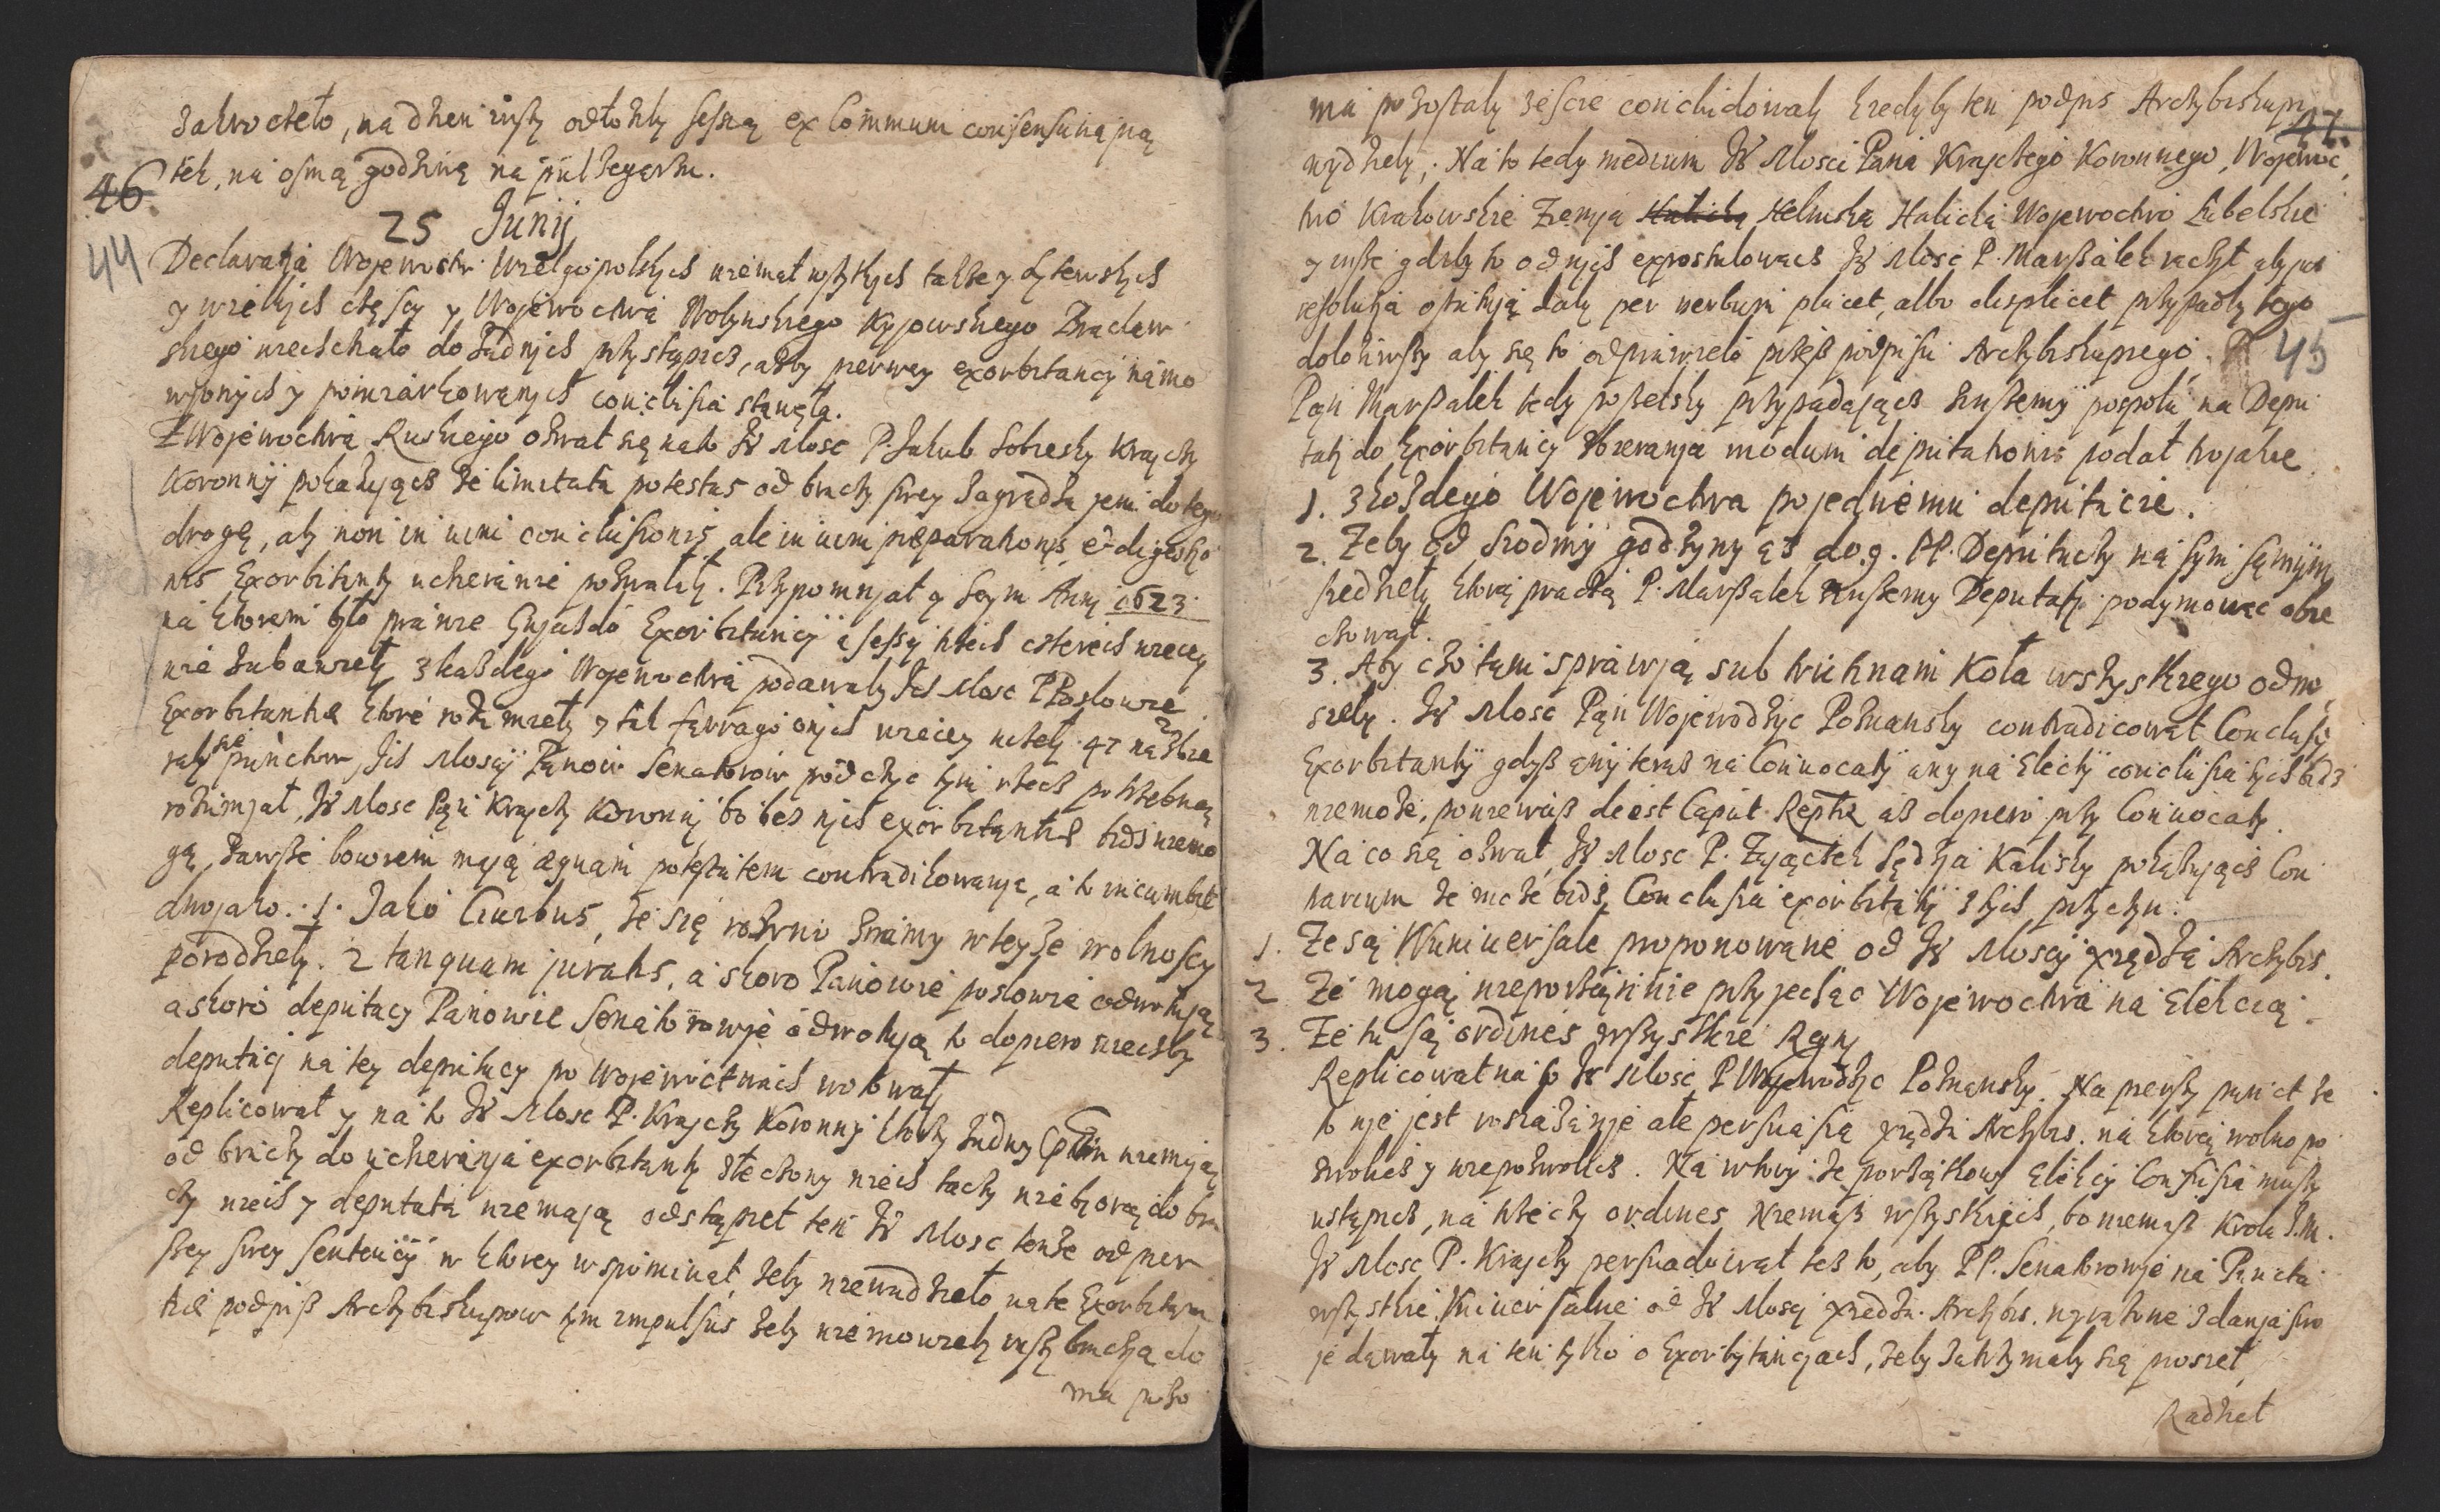 zawoełało, na dzien inszy odłożyły sessią ex Communi consensu na pią
46
tek, na osmą godzinę na pułzegarzu.
25 Junij
44
Declaratia Wojewostw Wielgopolskich niemal wszytkich także y Lytewskich
y wielkich częscy y Wojewoctwa Wołynskiego Kyjowskiego Braclaw
skiego niechciało do żadnych przystąpicz, ażby pierwey exorbitancy namo
wjonych y pomiarkowanych conclusia stanęła.
Z Wojewoctwa Ruskiego ozwał się na to JW Mosc P. Jakub Sobiesky Krayczy
Koronny pokazując że limitata potestas od braczy swey zagradza jem do tego
drogę, aby non in vim conclusionis ale in vim præparationis et digestio
nis Exorbitanty ucheranie pozwalały. Przypomnjał y Seym Anni 1623
na ktorem było prawie Gnjazdo Exorbitancij a sessij trzech czterech więcey
nie zubawiely, z każdego Wojewoctwa podawały Ich Mosc PPosłowie
Exorbitantie ktore rozumiely y tak farrago onych więcey niżely 47 nazbie
rały się punctow, Ich Moscij Panow Senatorow podczyc tym rzecz potrzebną
rozumjał, JW Mosc Pan Krayczy Koronny bo bez nych exorbitantie bydz niemo
gą, zawsze bowiem mają æquam potestatem contradikowanja, a to incumbit
dwojako. 1. Jako Civibus, że się rowno z nimy w teyże wolnoscy
porodziely. 2 tanquam juratis, a skoro Panowie posłowie odwołują
a skoro deputacy Panowie Senatorowje odwołyją to dopiero niechby
deputacj na tey deputacy po Wojewoctwach wotowały
Replicował y na to JW Mosc P. Krayczy Koronny ktorzy żadny niemiją
od braczy do ucheranja exorbitanty zleczony niech taczy nie bjorą do bra
czy niech y deputata niemają odstąpieł ten JW Mosc tenże od pier
szey swey sentencij w ktorey wspominał, żeby niewadzieło na te Exorbitan
tie podpisz Archybiskupow tym impulsus żeby niemowiely inszy braczja do
ma pozo
ma pozostały żescie concludowaly kiedyby ten podpis Archybiskupi
47.
wydziely, Na to tedy medium JW Mosci Pana Krayczego Koronnego, Wojewoc,
two Krakowskie Ziemja Halicka Helmska Halicka Wojewoctwo Lubelskie
y insze gdyby to od nych expostulowacz JW Mosc P. Marszałek raczył aby
resolutia ostatnją daly per verbum placet, albo displicet przypadły tego
dolożiwszy aby się to odprawieło przesz podpisu Archybiskupiego.
45
Pan Marszałek tedy poselsky przypadającz z inszemy pospołu na Depu
taty do Exorbitancij zbieranja modum deputationis podał trojakie
1. z każdego Wojewoctwa pojednemu deputacie.
2. Żeby od siodmy godzyny aż do 9. PP. Deputaczy na tym samym
siedziely ktorą praczą P. Marszałek z inszemy Deputaty podymowac obie
cowal.
3. Aby co tam sprawją sub trutinam Koła wszyskiego odno
siely. JW Mosc Pan Wojewodzyc Poznansky contradicował Conclusij
Exorbitantij gdysz anij teraz na Convocaty any na Electij conclusia tych bidz
niemoże, poniewasz deest Caput Reptæ aż dopiero przy Convocaty.
Na co się ozwał JW Mosc P. Zająćzek Sędzja Kalisky pokazującz Con
trarium że może bydz Conclusia exorbitantij z tych przyczyn:
1. Ze są W universale proponowane od JW Moscij xiędza Archybis.
2 Ze mogą nieporządnie przyjechac Wojewoctwa na Elekcią
3. Ze tu są ordines wszyskie Regni
Replicował na to JW Mosc P Wojewodzyc Poznansky. Na perszy punct że
to nje jest roskazanje ale persuasią xiędza Archybis. na ktorą wolno po
zwolicz y niepozwolicz. Na wtory: że porządkowy Elekcij Confusia muszy
ustąpicz, na trzeczy ordines Niemasz wszyskich, bo niemasz Krola J.M.
JW Mosc P. Krayczy persuadował też to, aby PP. Senatorowje na Puncta
wszyskie Kniwersalne od JW Moscy xiedza. Archybis. wyrażone zdanja swo
je dawały na ten tylko o Exorbytancjach, żeby zatrzymały się prosieł,
Radzieł